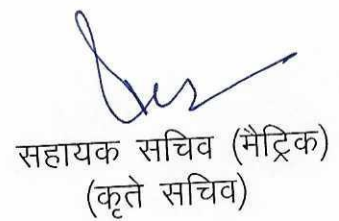 सहायक सचिव (मैट्रिक)
(कृते सचिव)